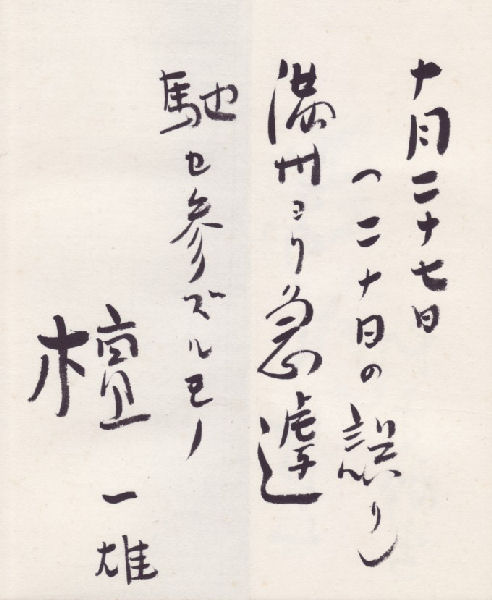 十月二十七日
(二十日の誤り)
満州ヨリ急遽
馳セ参ズルモノ
檀一雄